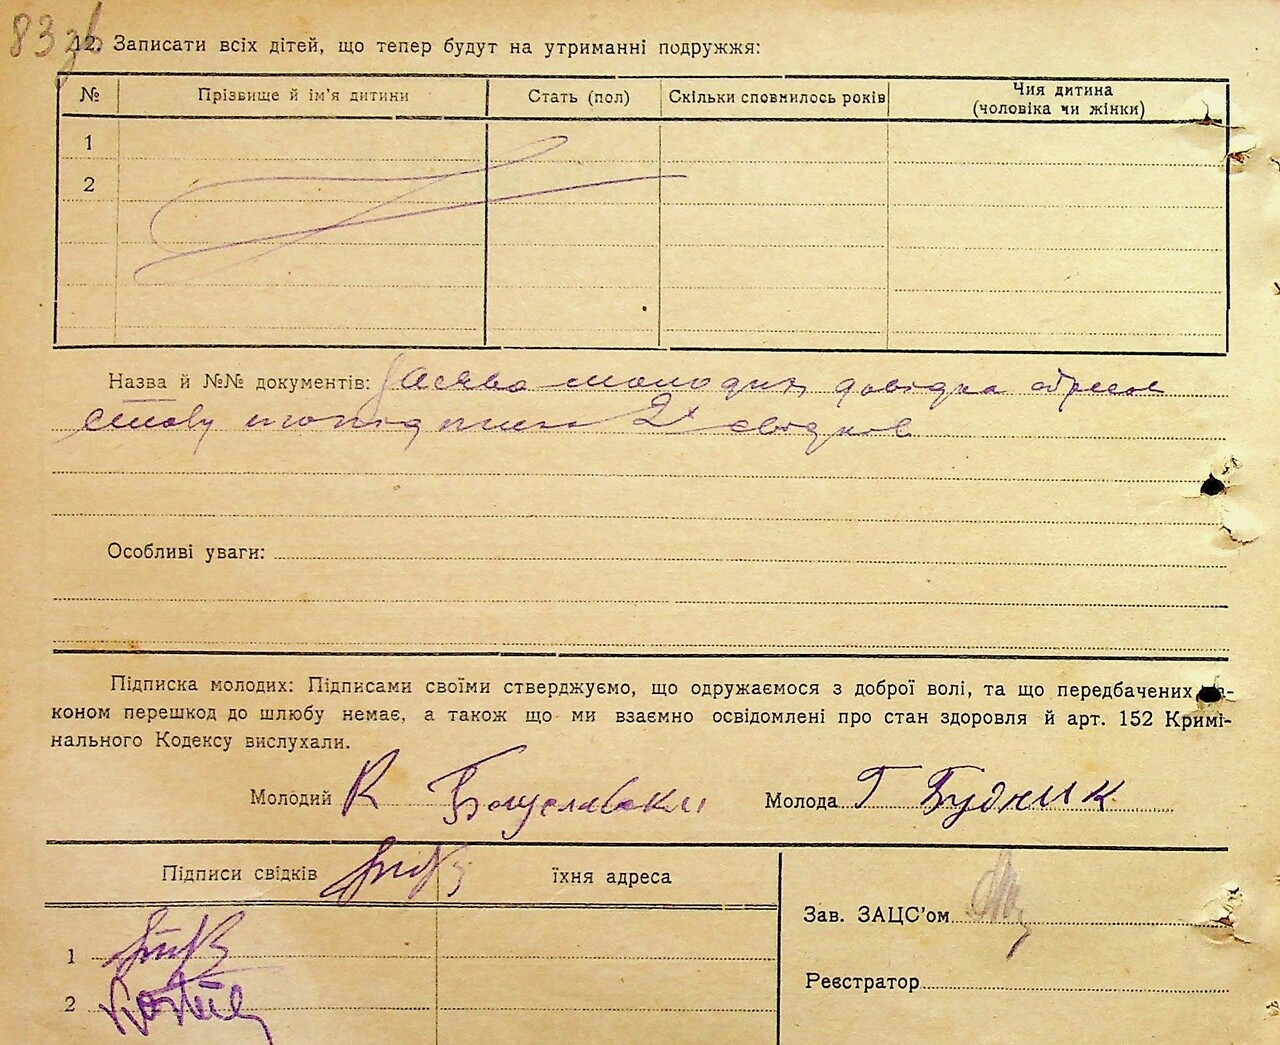 83 зв
12. Записати всіх дітей, що тепер будут на утриманні подружжя:
№ Прізвище й ім'я дитини Стать (пол) Скільки сповнилось років Чия дитина
(чоловіка чи жінки)
1
2
Назва й №№ документів: Заява молодих, довідка
2х свідков
Особливі уваги:
Підписка молодих: Підписами своїми стверджуємо, що одружаємося з доброї волі, та що передбачених за-
коном перешкод до шлюбу немає, а також що ми взаємно освідомлені про стан здоровля й арт. 152 Кримі-
нального Кодексу вислухали.
Молодий К Богуславски Молода Г Будник
Підписи свідків їхня адреса
Зав. ЗАЦС'ом
1
Реєстратор
2